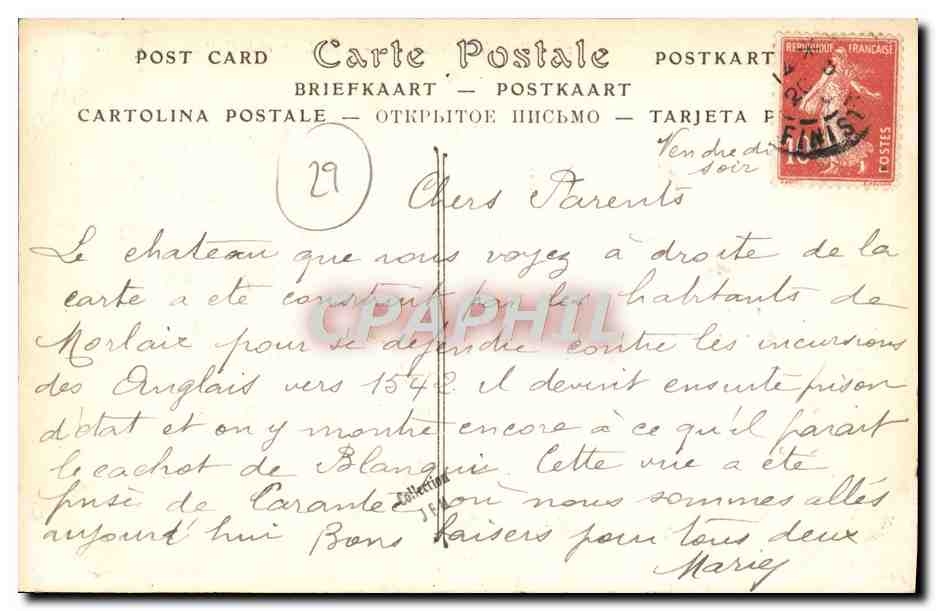 POST CARD Carte Postale POSTKART
BRIEFKAART — POSTKAART
CARTOLINA POSTALE — ОТКРЫТОЕ ПИСЬМО — TARJETA P
REPUBLIQUE FRANÇAISE
10
POSTES
FINIS
Vendredi
soir
29
Chers Parents
Le chateau que vous voyez à droite de la
carte a ete construit par les habitants de
Morlaix pour se défendre contre les incursions
des Anglais vers 1542 il devint ensuite prison
d'état et on y montre encore à ce qu'il parait
le cachot de Blanquis. Cette vue a été
prise de Carantec, où nous sommes allés
aujourd'hui Bons baisers pour tous deux
Marie
CPAPHIL
Collection